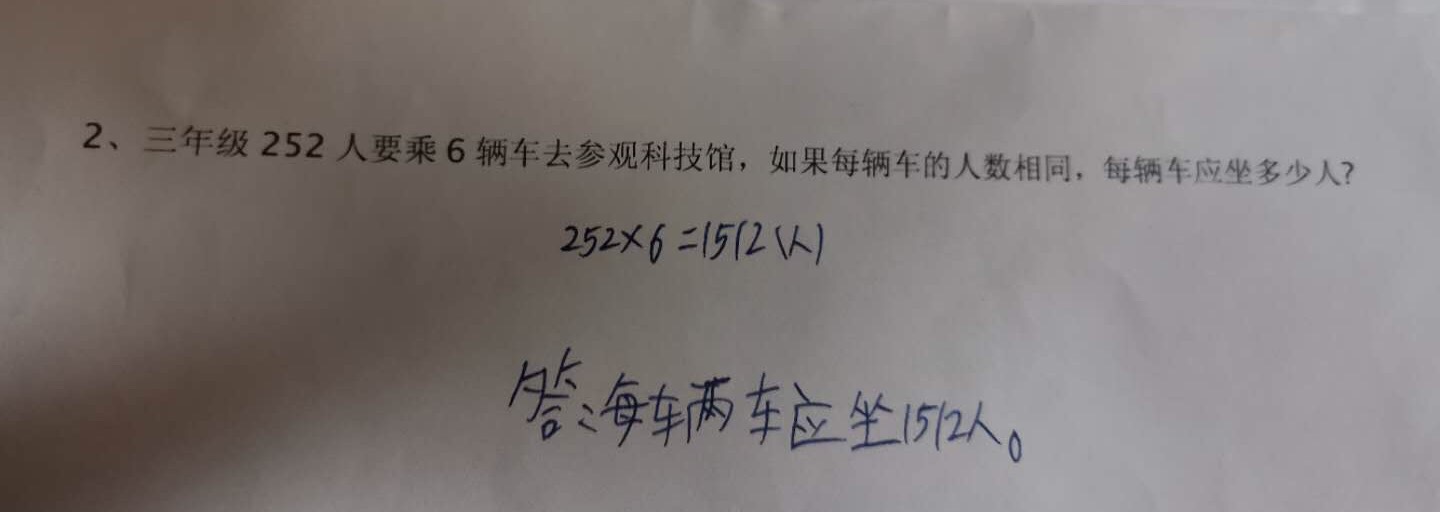 2、三年级 252 人要乘 6 辆车去参观科技馆，如果每辆车的人数相同，每辆车应坐多少人?
252×6=1512(人)
答:每辆车应坐1512人。